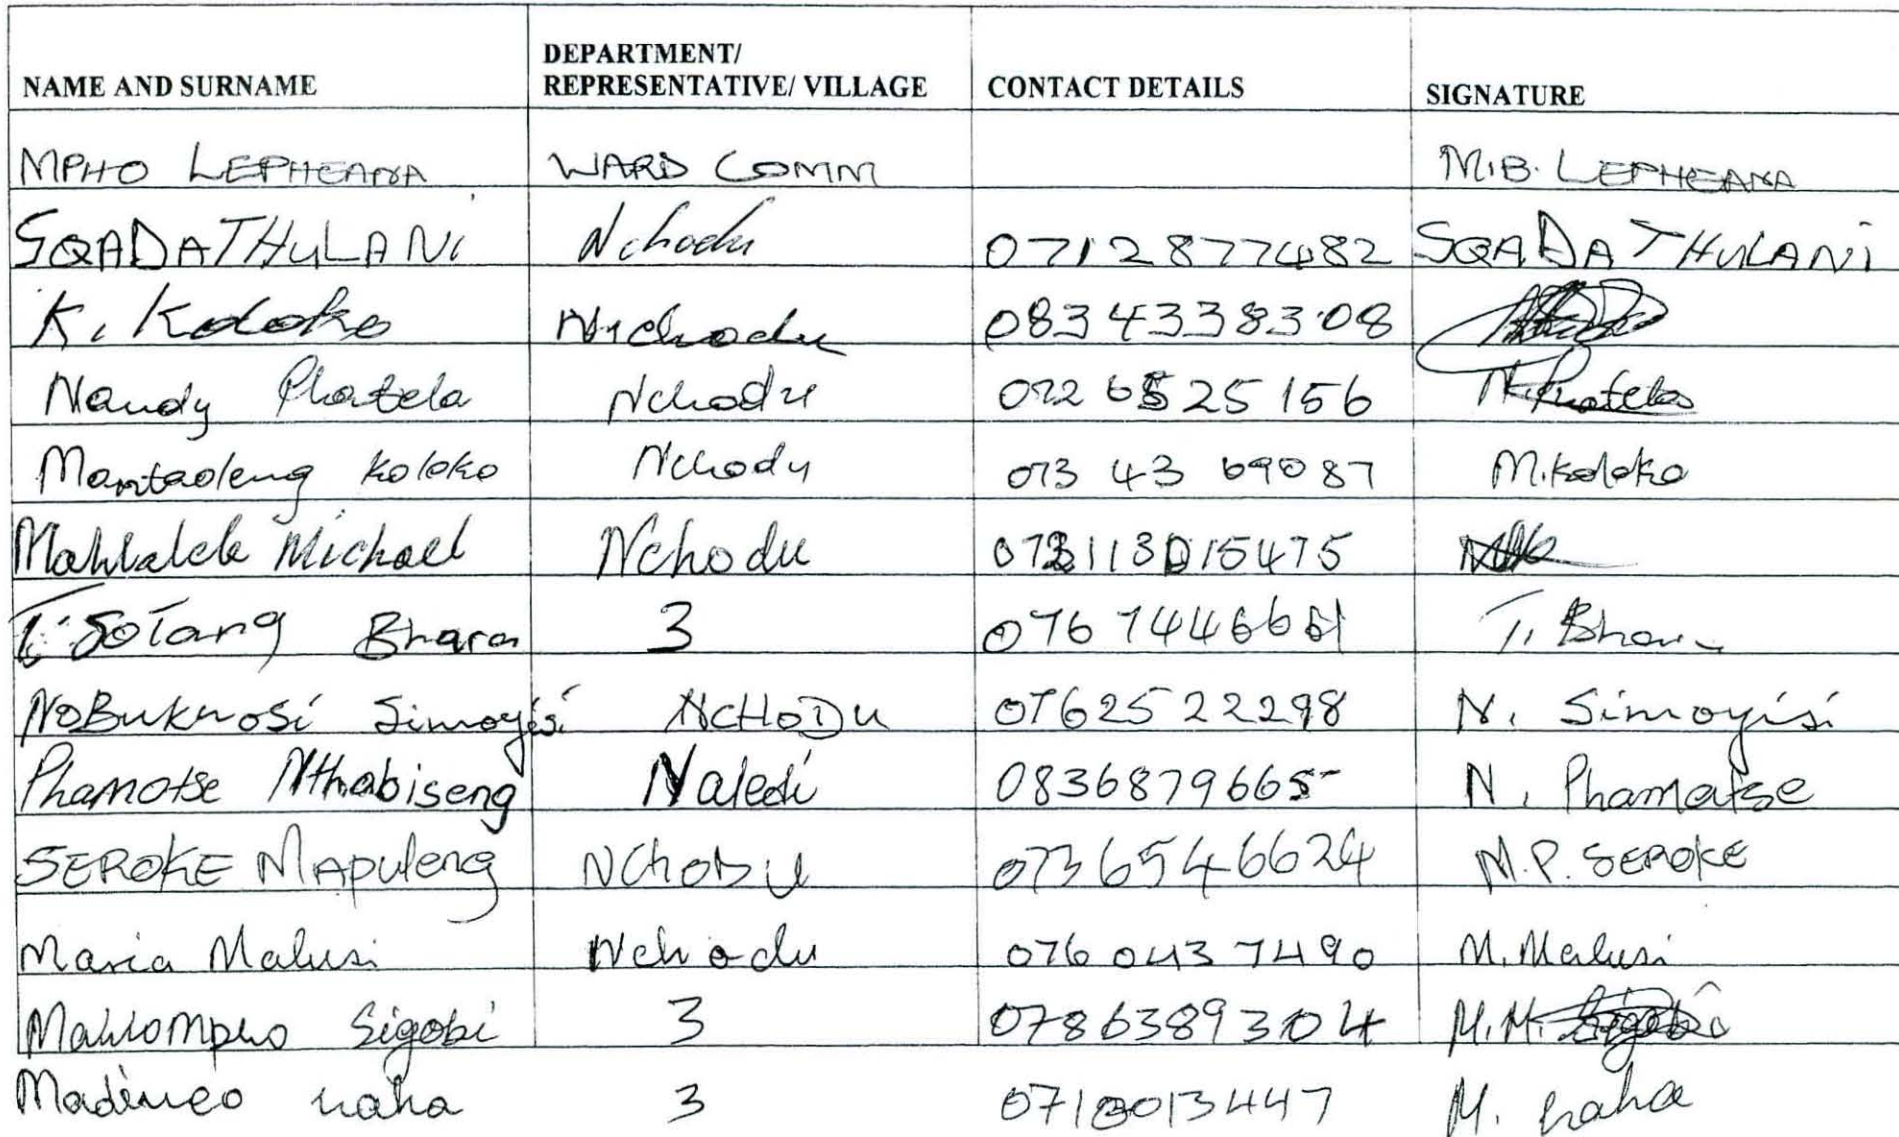 NAME AND SURNAME DEPARTMENT/ REPRESENTATIVE/ VILLAGE CONTACT DETAILS SIGNATURE
MPHO LEPHEANA WARD COMM M.B. LEPHEANA
SQADA THULANI Nchodu 0712877482 SQADA THULANI
K. Koloko Nchodu 0834338308
Nandy Phatela Nchodu 072 6525 156 N. Phatela
Mantaoleng Koloko Nchodu 073 43 69087 M. Koloko
Mahlalele Michael Nchodu
T. Sotang Bhara 3 076 7446661 T. Bhara
NoBukhosi Simoyisi NCHODU 0762522298 N. Simoyisi
Phamotse Nthabiseng Naledi 0836879665 N. Phamotse
SEROKE Mapuleng NChoDU 0736546624 M.P. SEROKE
Maria Malusi Nchodu 076 043 7490 M. Malusi
Mahlompho Sigobi 3 0786389304 M.M. Sigobi
Madineo naha 3 M. naha